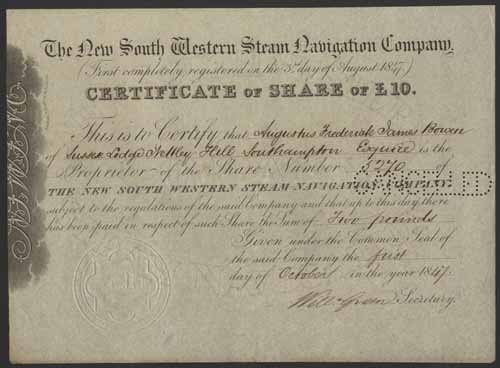 The New South Western Steam Navigation Company.
(First completely registered on the 5th day of August 1847.)
CERTIFICATE OF SHARE OF £10.
This is to Certify that Augustus Frederick James Bowen
of Sussex Lodge Nettley Hill Southampton Esquire is the
Proprietor of the Share Number 5270 of
THE NEW SOUTH WESTERN STEAM NAVIGATION COMPANY
CANCELLED
subject to the regulations of the said Company and that up to this day there
has been paid in respect of such Share the Sum of Two pounds
Given under the Common Seal of
the said Company the first
day of October in the year 1847.
Will Green Secretary.